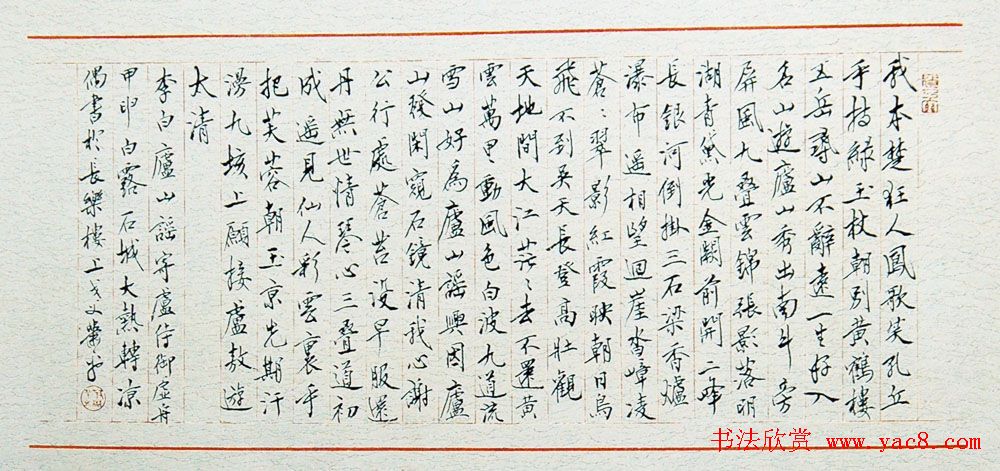 我本楚狂人鳳歌笑孔丘
手持綠玉杖朝別黃鶴樓
五岳尋山不辭遠一生好入
名山遊廬山秀出南斗旁
屏風九叠雲錦張影落明
湖青黛光金闕前開二峰
長銀河倒掛三石梁香爐
瀑布遥相望迴崖沓嶂凌
蒼〻翠影紅霞映朝日鳥
飛不到吳天長登高壯觀
天地間大江茫〻去不還黃
雲萬里動風色白波九道流
雪山好為廬山謠興因廬
山發閑窺石鏡清我心謝
公行處蒼苔没早服還
丹無世情琴心三叠道初
成遥見仙人彩雲裏手
把芙蓉朝玉京先期汗
漫九垓上願接盧敖遊
太清
李白廬山謠寄盧侍御虛舟
甲申白露石城大熱轉涼
偶書於長樂樓上
书法欣赏 www.yac8.com